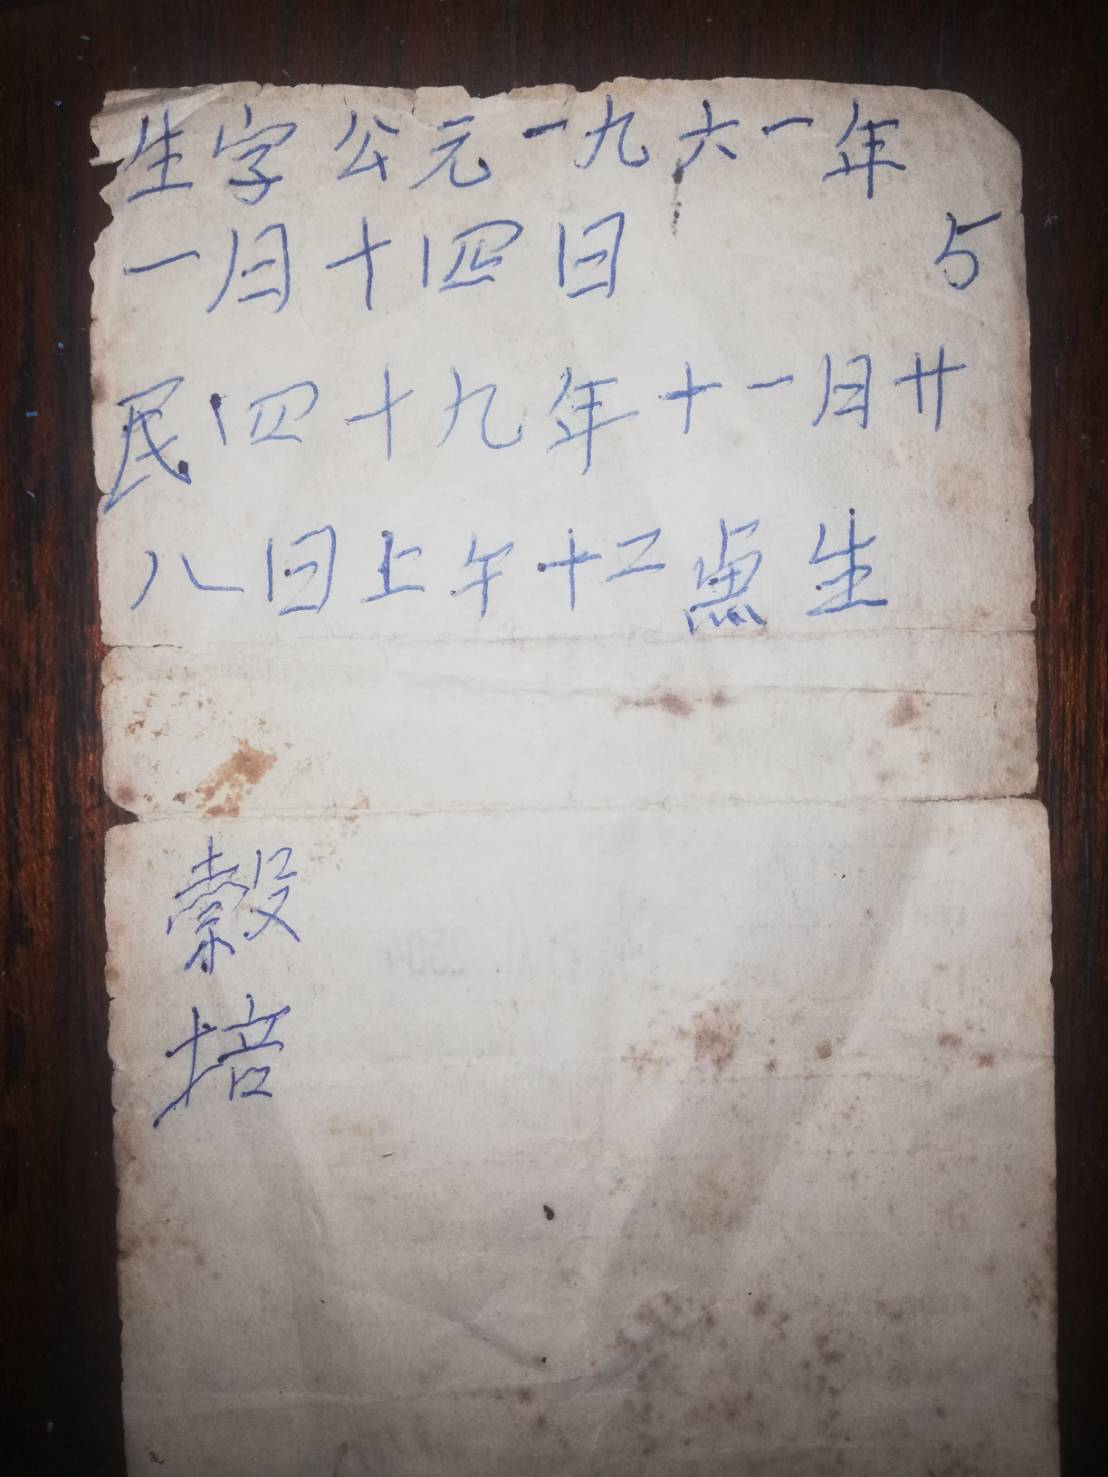 生字公元一九六一年
一月十四日 5
民四十九年十一月廿
八日上午十二点生
榖
培